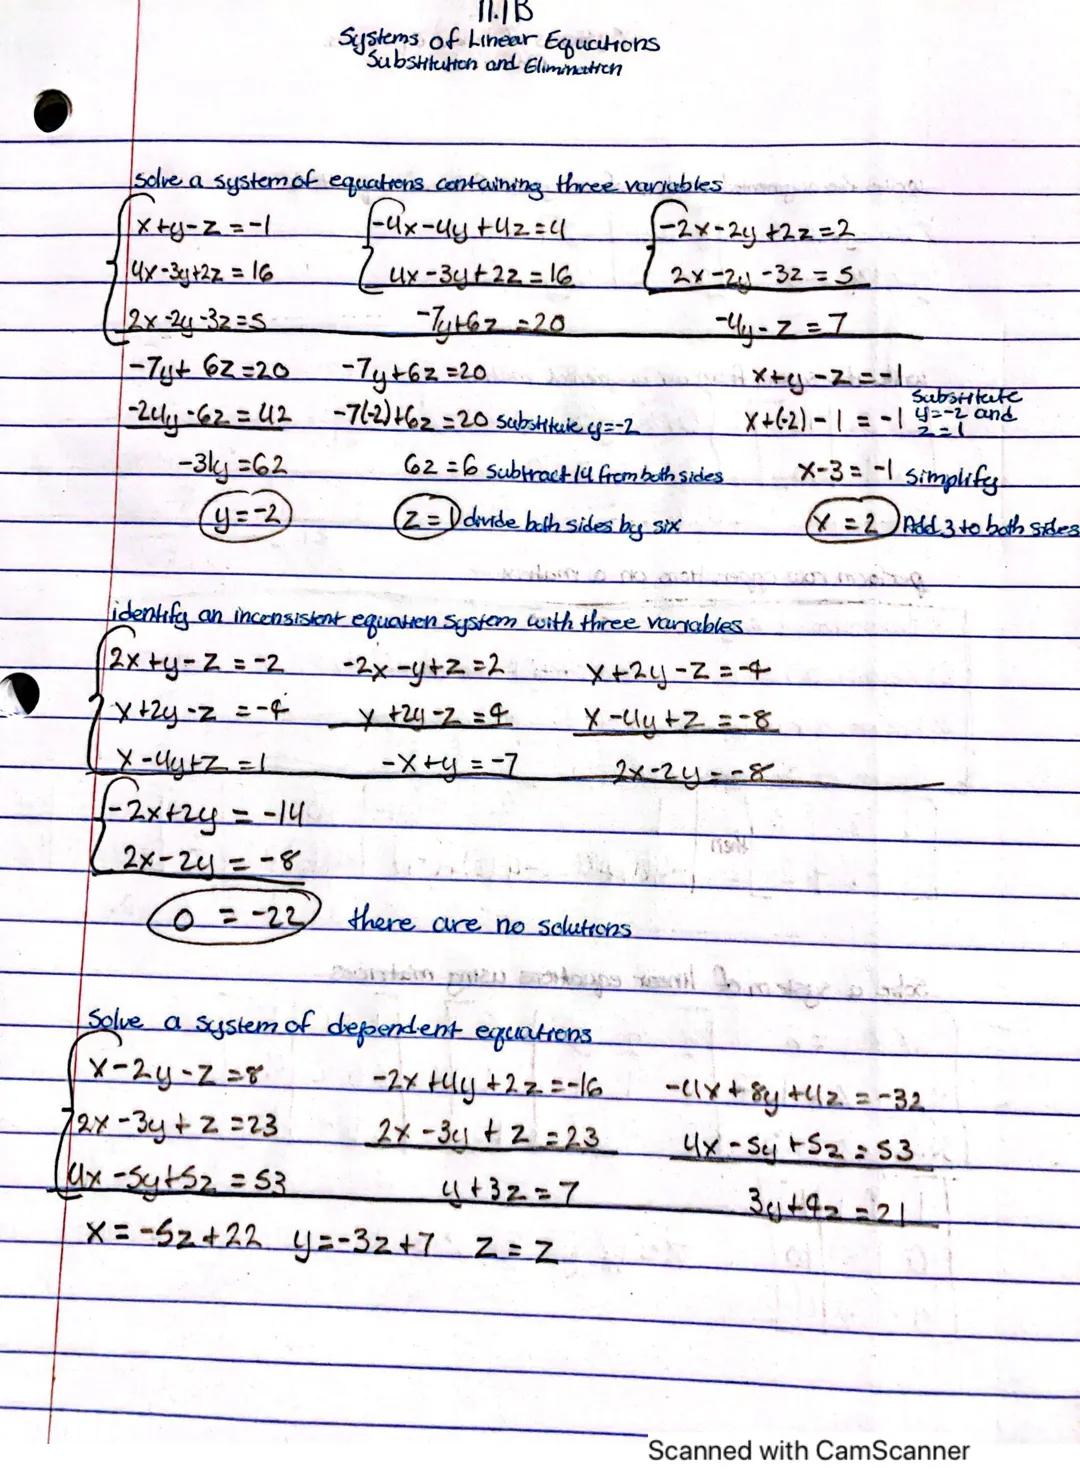 11.1B
Systems of Linear Equations
Substitution and Elimination
Solve a system of equations containing three variables
x+y-z=-1 -4x-4y+4z=4 -2x-2y+2z=2
4x-3y+2z=16 4x-3y+2z=16 2x-2y-3z=5
2x-2y-3z=5 -7y+6z=20 -4y-z=7
-7y+6z=20 -7y+6z=20 x+y-z=-1
-24y-6z=42 -7(-2)+6z=20 substitute y=-2 x+(-2)-1=-1 Substitute y=-2 and z=1
-31y=62 6z=6 subtract 14 from both sides x-3=-1 simplify
y=-2 z=1 divide both sides by six x=2 Add 3 to both sides
identify an inconsistent equation system with three variables
2x+y-z=-2 -2x-y+z=2 x+2y-z=-4
x+2y-z=-4 x+2y-z=4 x-4y+z=-8
x-4y+z=1 -x+y=-7 2x-2y=-8
-2x+2y=-14
2x-2y=-8
0=-22 there are no solutions
Solve a system of dependent equations
x-2y-z=8 -2x+4y+2z=-16 -4x+8y+4z=-32
2x-3y+z=23 2x-3y+z=23 4x-5y+5z=53
4x-5y+5z=53 y+3z=7 3y+9z=21
x=-5z+22 y=-3z+7 z=z
Scanned with CamScanner